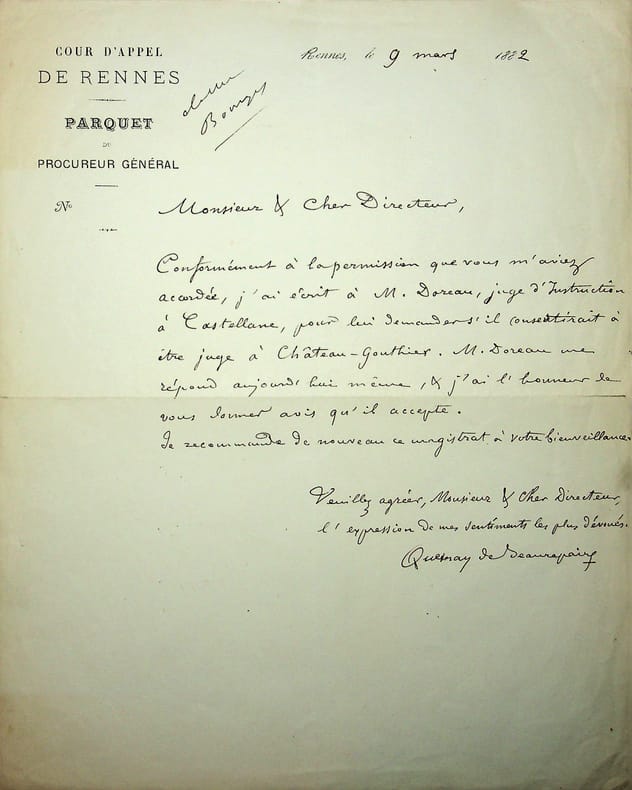 COUR D'APPEL
DE RENNES
PARQUET
DU
PROCUREUR GÉNÉRAL
Nº
Rennes, le 9 mars 1882
Monsieur & Cher Directeur,
Conformément à la permission que vous m'aviez
accordée, j'ai écrit à M. Doreau, juge d'Instruction
à Castellane, pour lui demander s'il consentirait à
être juge à Château-Gonthier. M. Doreau me
répond aujourd'hui même, & j'ai l'honneur de
vous donner avis qu'il accepte.
Je recommande de nouveau ce magistrat à votre bienveillance.
Veuillez agréer, Monsieur & Cher Directeur,
l'expression de mes sentiments les plus dévoués.
Quesnay de Beaurepaire